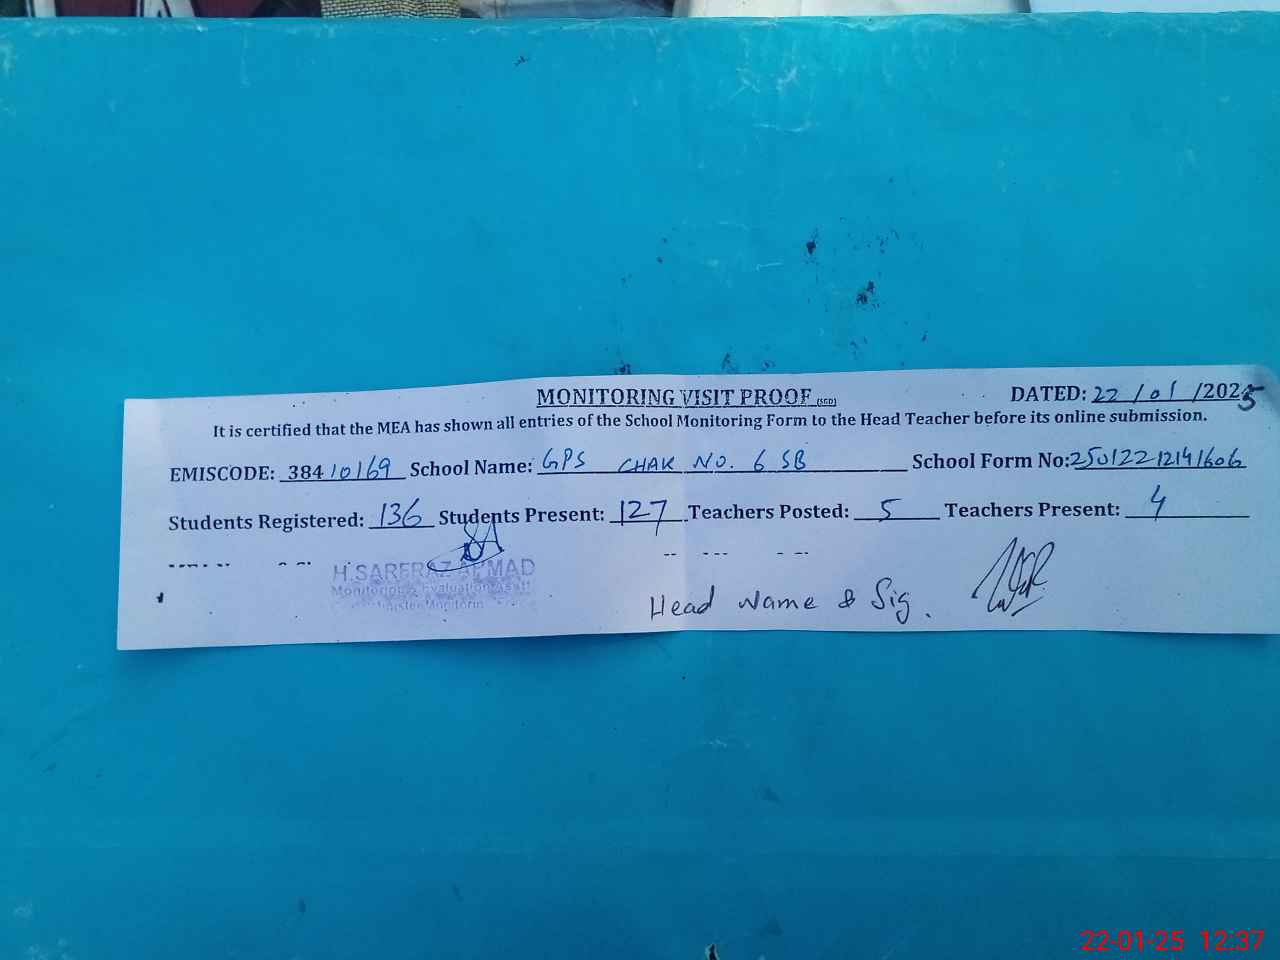 MONITORING VISIT PROOF (SED)
DATED: 22/01/2025
It is certified that the MEA has shown all entries of the School Monitoring Form to the Head Teacher before its online submission.
EMISCODE: 38410169 School Name: GPS CHAK NO. 6 SB School Form No:25012212141606
Students Registered: 136 Students Present: 127 Teachers Posted: 5 Teachers Present: 4
H.SARFRAZ AHMAD
Monitoring & Evaluation Asstt
Monitorin
Head Name & Sig.
22-01-25 12:37